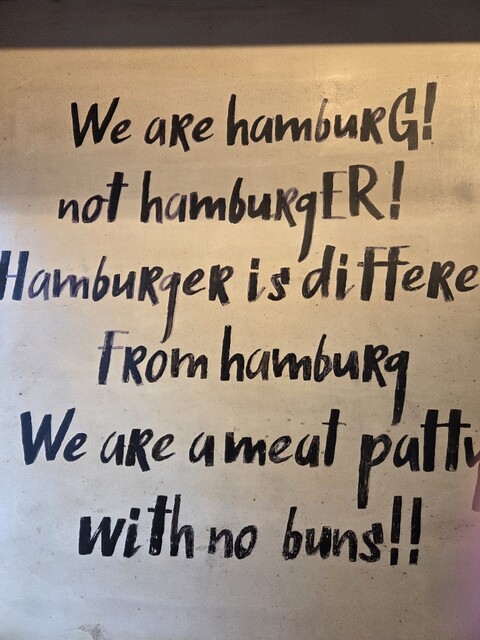 We are hamburG!
not hamburgER!
Hamburger is differe
From hamburg
We are a meat patty
with no buns!!